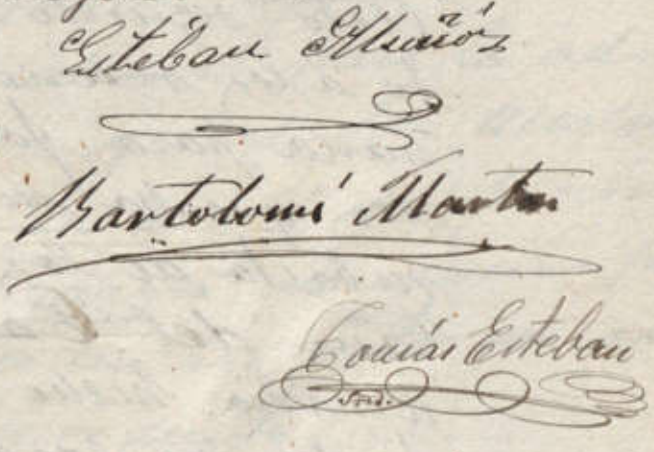 Estéban Muñóz
Bartolomé Martin
Tomás Esteban